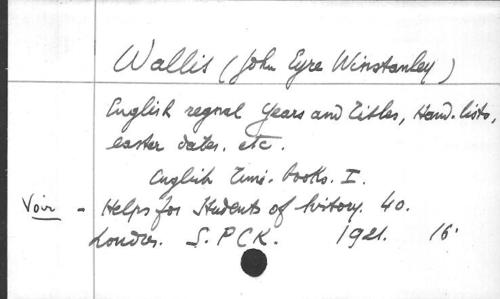 Wallis (John Eyre Winstanley)
English regnal years and Titles, Hand-lists,
easter dates. etc.
English Time-books. I.
Voir - Helps for Students of history. 40.
Londres. S.P.C.K. 1921. 16°